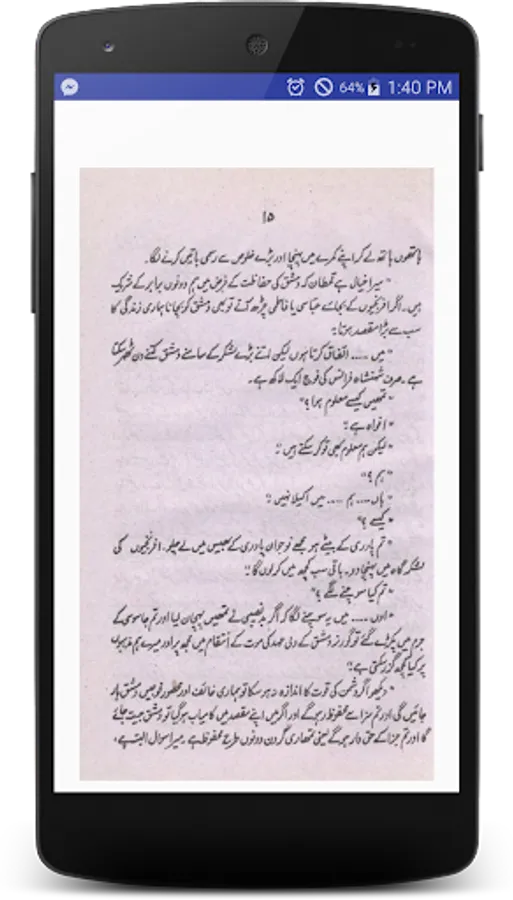 64% 1:40 PM
۱۵
ہاتھوں ہاتھ لے کر اپنے کمرے میں پہنچا اور بڑے خلوص سے رسمی باتیں کرنے لگا۔
" میرا خیال ہے قمطان کہ دمشق کی حفاظت کے فرض میں ہم دونوں برابر کے شریک
ہیں۔ اگر افرنجیوں کے بجائے عباسی یا فاطمی چڑھ آتے تو بھی دمشق کو بچانا ہماری زندگی کا
سب سے بڑا مقصد ہوتا۔"
" میں ..... اتفاق کرتا ہوں لیکن اتنے بڑے لشکر کے سامنے دمشق کتنے دن ٹھہر سکتا
ہے۔ صرف شہنشاہ فرانس کی فوج ایک لاکھ ہے۔
" تمھیں کیسے معلوم ہوا؟"
" افواہ ہے"
" لیکن ہم معلوم بھی تو کر سکتے ہیں"
" ہم؟"
" ہاں .... ہم .... میں اکیلا نہیں"
" کیسے؟"
" تم پادری کے بیٹے ہو مجھے نوجوان پادری کے بھیس میں لے چلو۔ افرنجیوں کی
لشکر گاہ میں پہنچا دو۔ باقی سب کچھ میں کر لوں گا"
" تم کیا سوچنے لگے؟"
" اوں ..... میں یہ سوچنے لگا کہ اگر بدنصیبی نے تمھیں پہچان لیا اور تم جاسوسی کے
جرم میں پکڑے گئے تو گورنر دمشق کے ولی عہد کی موت کے انتقام میں مجھ پر اور میرے ہم مذہبوں
پر کیا کچھ گزر سکتی ہے"
" دیکھو اگر دشمن کی قوت کا اندازہ نہ ہو سکا تو ہماری خائف اور محصور فوجیں دمشق ہار
جائیں گی اور تم سزا سے محفوظ رہو گے اور اگر میں اپنے مقصد میں کامیاب ہو گیا تو دمشق جیت جائے
گا اور تم جزا کے حق دار ہو گے یعنی تمھاری گردن دونوں طرح محفوظ ہے۔ میرا سوال البتہ ہے،